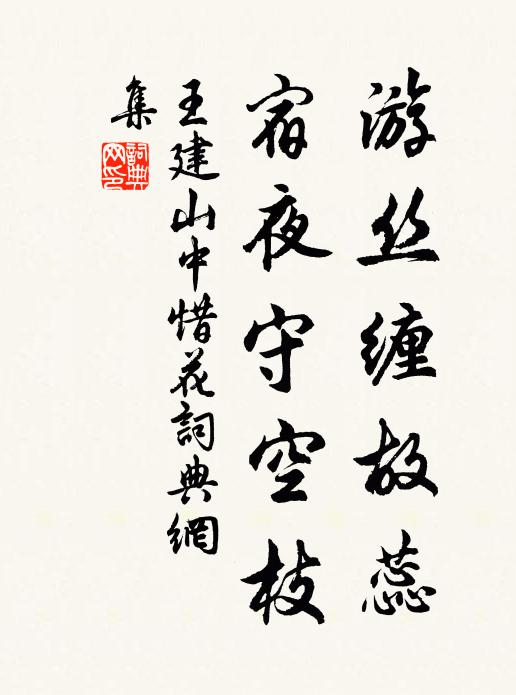 游丝缠故蕊
宿夜守空枝
王建山中惜花詞典網
集
詞典网印